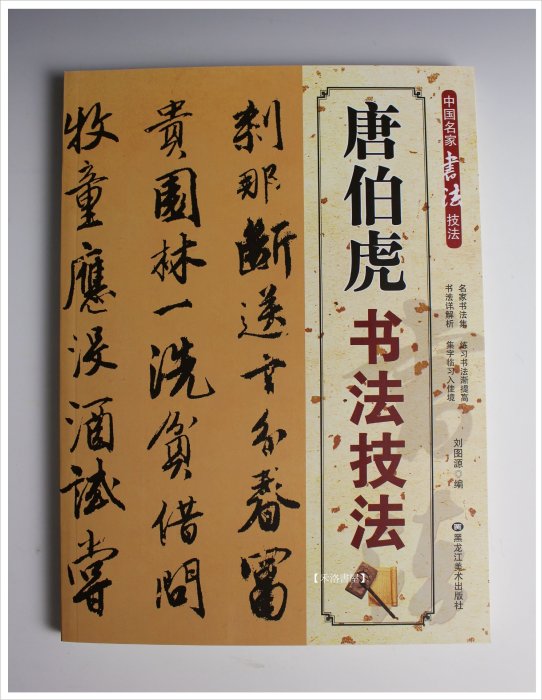 中国名家書法技法
名家书法集 练习书法渐提高
书法详解析 集字临习入佳境
刘图源 编
黑龙江美术出版社
唐伯虎书法技法
刹那斷送十分春富
貴園林一洗貧借問
牧童應没酒試嘗
【禾洛書屋】